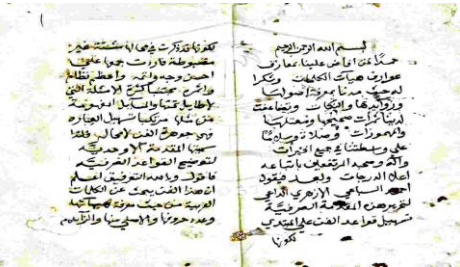 بسم الله الرحمن الرحيم
حمدا لمن افاض علينا معارف
عوارف هيات الكلمات وشكرا
له حيث مدنا بمعرفة اصولها
وزوايدها والنكات وتضاعفت
لدينا ثمرات صحيحها ومعتلها
والمهموزات وصلاة وسلاما
على واسطتنا في جميع الخيرات
وآله وصحبه المرتفعين باتباعه
اعلا الدرجات وبعد فيقول
احمد السباعي الازهري الداعي
لتحرير هذه المقدمة الصرفية
تسهيل قواعد الفن على المبتدي
لكونها
لكونها قد ذكرت في محال مشتتة غير
مضبوطة فاردت جمعها على
احسن وجه واتمه واعظم نظام
واتمه مجتنبا كثرة الاسئلة التي
لا طايل تحتها والمسايل الغير
من مثلها مرتكبا تسهيل العبارة
فهي جوهرة الفن لا محالة فلذا
سميتها المقدمة الاوحدية
لتوضيح القواعد الصرفية
فاقول وبالله التوفيق اعلم
ان هذا الفن يبحث عن الكلمات
العربية من حيث معرفة هيياتها
وعدد حروفها والاصلي منها والزايد